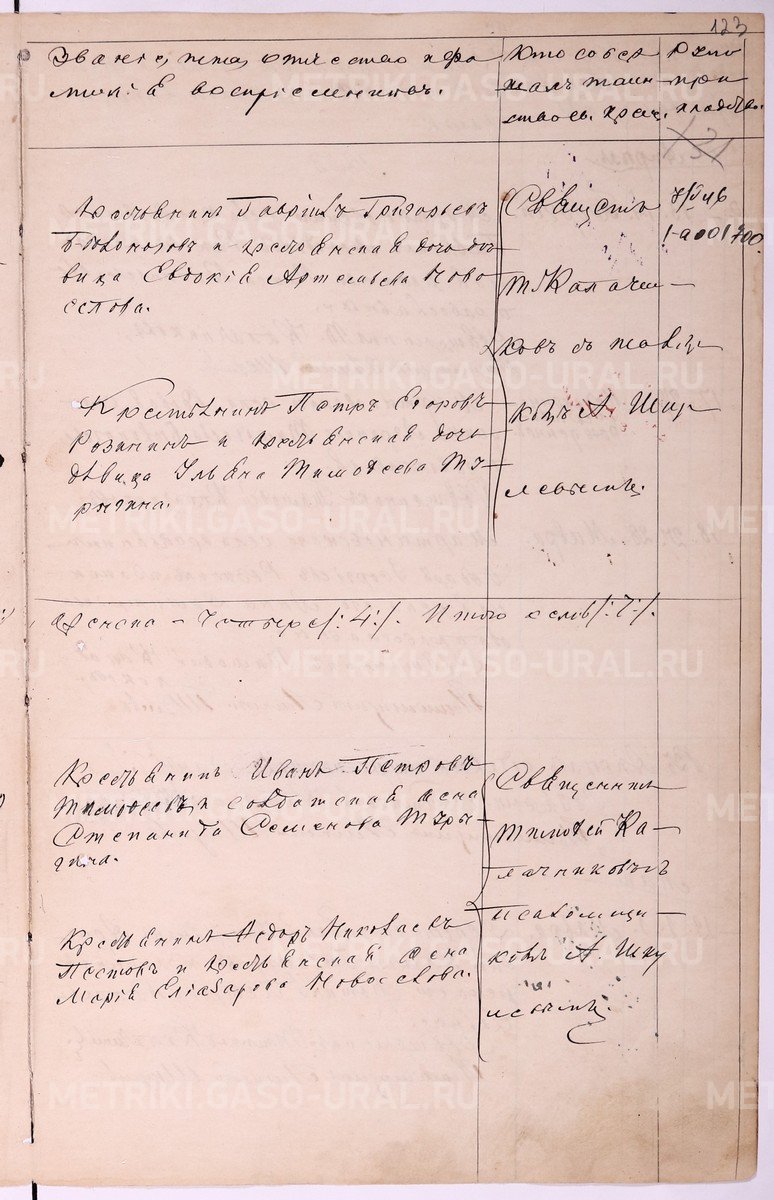 123
Званіе, имя, отчество и фа-
милія воспріемниковъ.
Кто совер
шалъ таин
ство св. крещ.
Руко
при
кладство.
131
Крестьянинъ Гавріилъ Григорьевъ
и крестьянская дочь дѣ-
вица Евдокія Артемьева Ново-
селова.
Священ
Т. Калачни-
ковъ съ псаломщи
комъ А. Шир
Крестьянинъ Петръ Егоровъ
и крестьянская дочь
дѣвица Ульяна Тимоѳеева Ту-
рыгина.
Женска – Четыре /:4:/. Итого семь /:7:/.
Крестьянинъ Иванъ Петровъ
Тимоѳеевъ и солдатская жена
Степанида Семенова Туры-
гина.
Священник
Тимоѳей Ка-
лачниковъ съ
псаломщи-
комъ А. Ши
Крестьянинъ Ѳедоръ Николаевъ
Пестовъ и крестьянская жена
Марія Елиазарова Новоселова.
METRIKI.GASO-URAL.RU